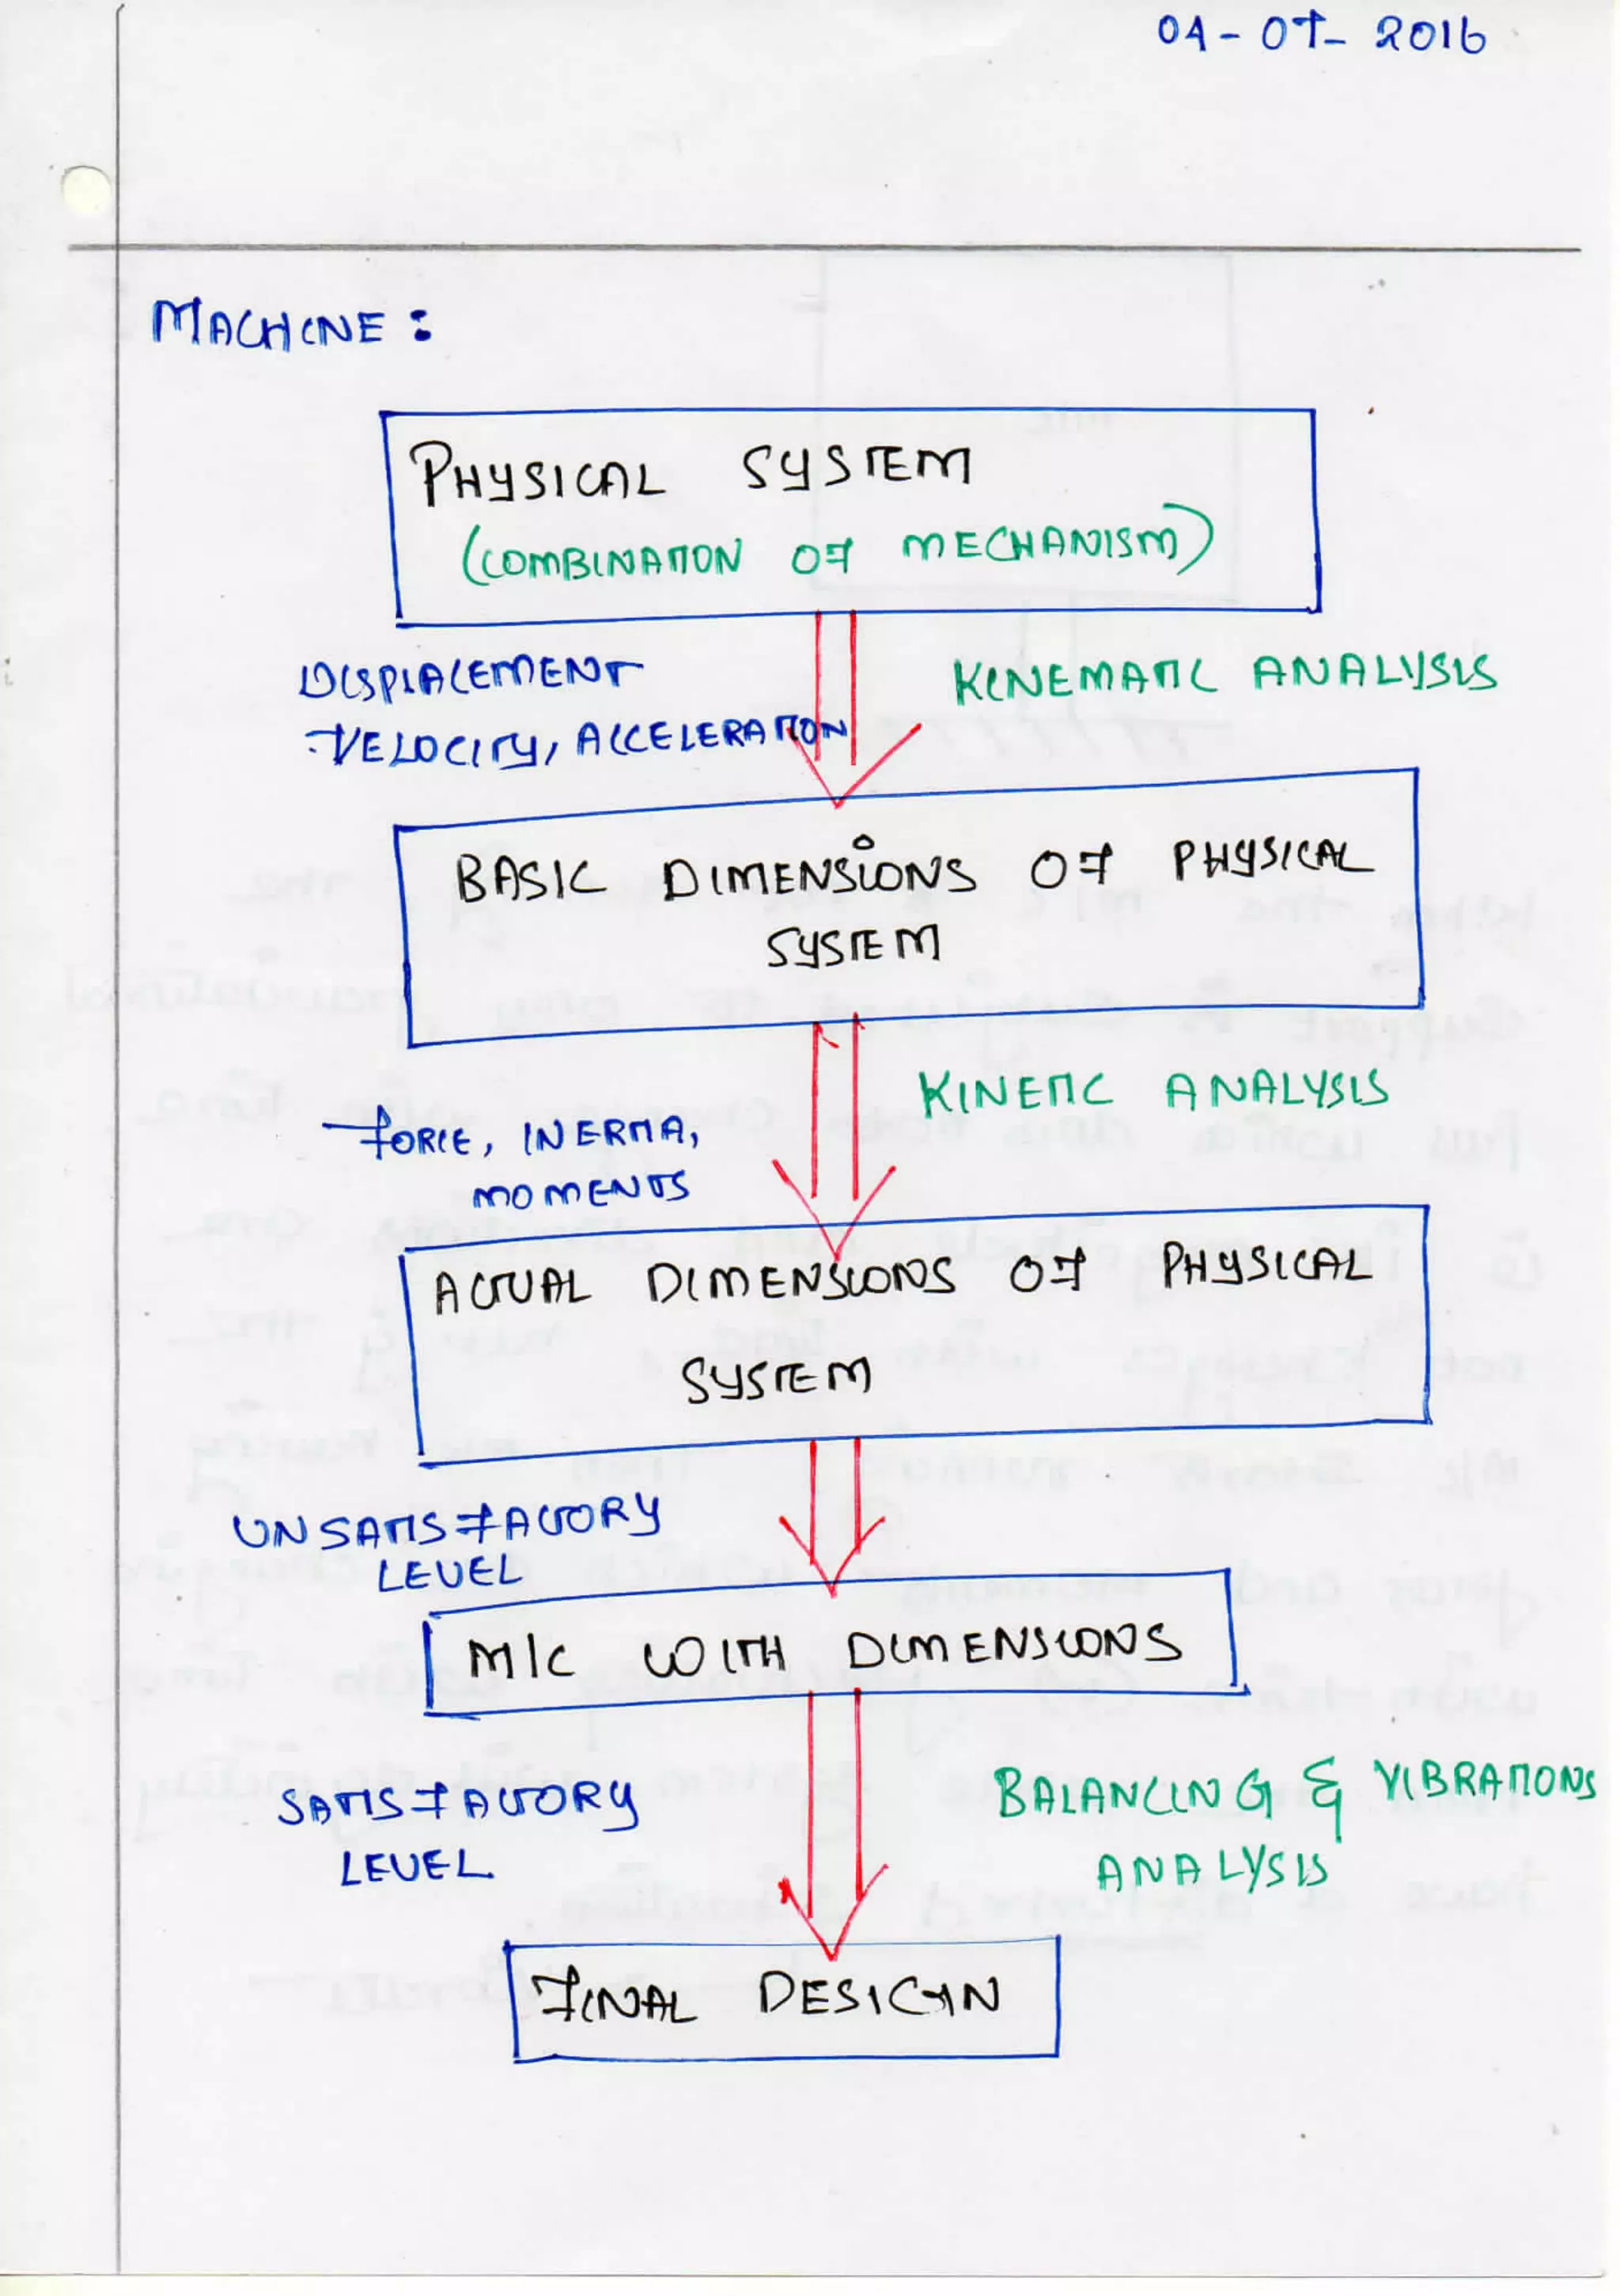 04-07-2016
MACHINE :
PHYSICAL SYSTEM
(COMBINATION OF MECHANISM)
DISPLACEMENT
VELOCITY, ACCELERATION
KINEMATIC ANALYSIS
BASIC DIMENSIONS OF PHYSICAL
SYSTEM
KINETIC ANALYSIS
FORCE, INERTIA,
MOMENTS
ACTUAL DIMENSIONS OF PHYSICAL
SYSTEM
UNSATISFACTORY
LEVEL
M/C WITH DIMENSIONS
SATISFACTORY
LEVEL
BALANCING & VIBRATIONS
ANALYSIS
FINAL DESIGN